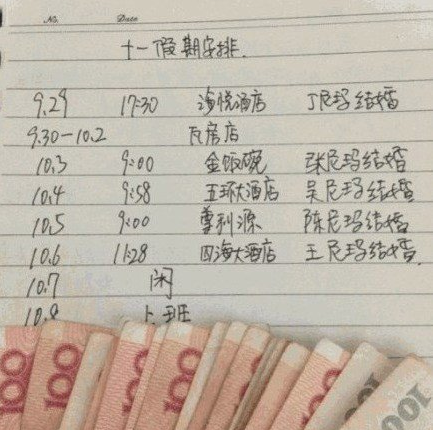 No. Date
十一假期安排.
9.29 17:30 海悦酒店 丁尼玛结婚
9.30-10.2 瓦房店
10.3 9:00 金饭碗 张尼玛结婚
10.4 9:58 五环大酒店 吴尼玛结婚
10.5 9:00 曹利源 陈尼玛结婚
10.6 11:28 四海大酒店 王尼玛结婚.
10.7 闲
10.8 上班
100
100
100
100
100
100